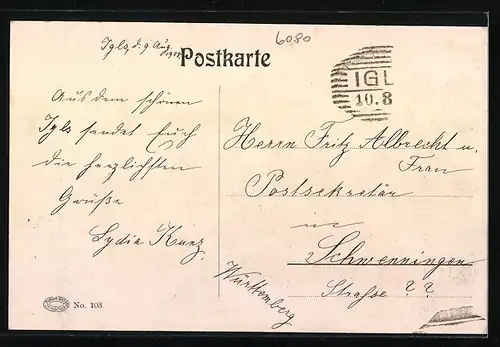 6080
Igls, d. 9. Aug.
Postkarte
IGL
10.8
Aus dem schönen
Igls sendet Euch
die herzlichsten
Grüße
Lydia Kunz
Herrn Fritz Albrecht u.
Frau
Postsekretär
in
Schwenningen
Württemberg
Straße ? ?
No. 103.